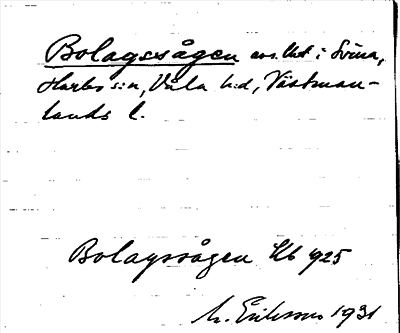 Bolagssågen ens. lht i Svina,
Harbo s:n, Våla h:d, Västman-
lands l.
Bolagssågen Kb 1925
M. Eriksson 1931